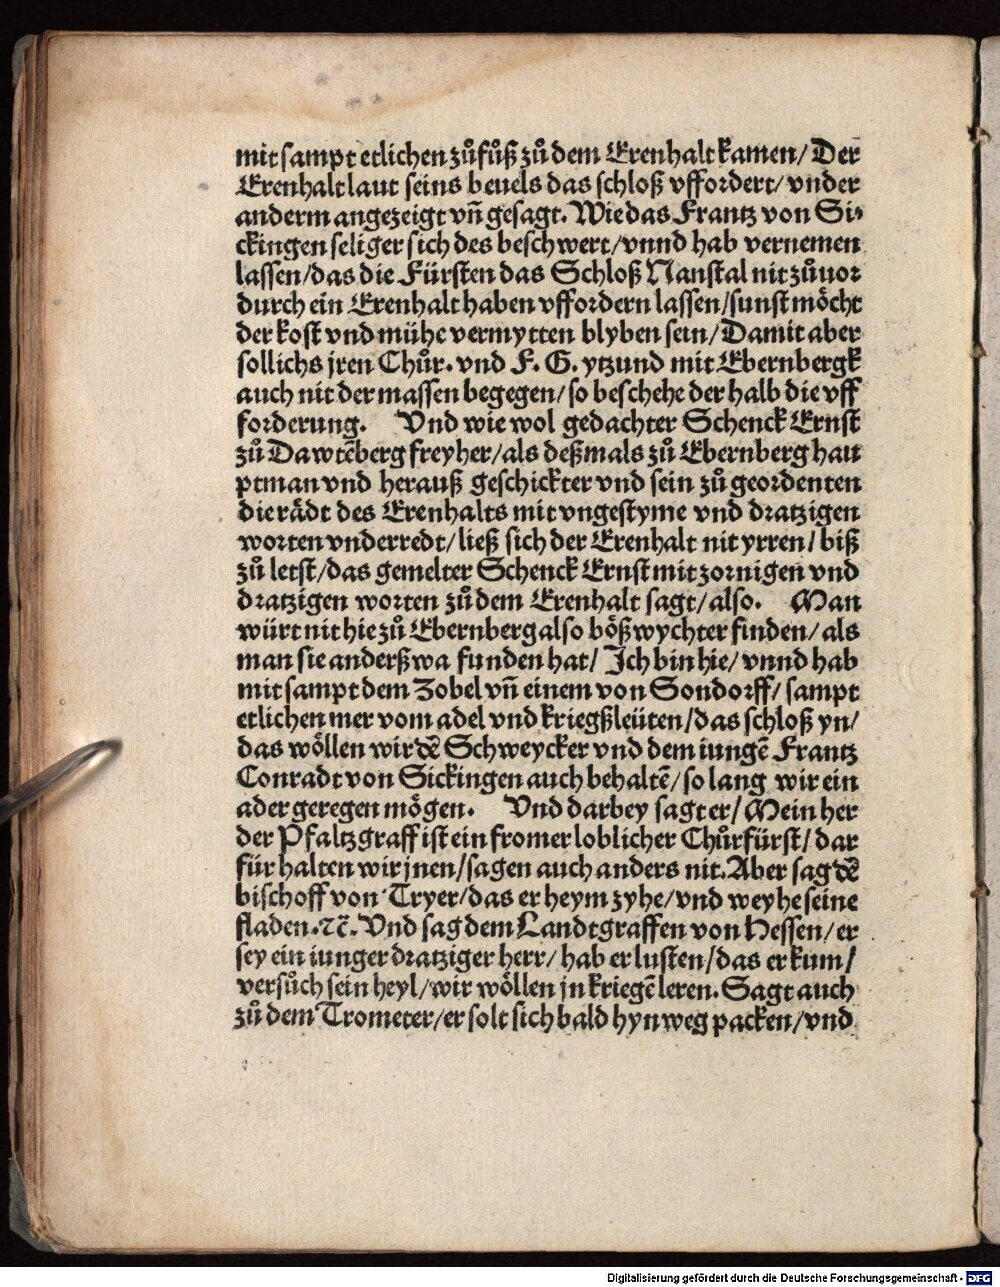 mit sampt etlichen zůfůß zů dem Erenhalt kamen/ Der
Erenhalt laut seins beuels das schloß vffordert/ vnder
anderm angezeigt vñ gesagt. Wie das Frantz von Si-
ckingen seliger sich des beschwert/ vnnd hab vernemen
lassen/ das die Fürsten das Schloß Nanstal nit zůuor
durch ein Erenhalt haben vffordern lassen/ sunst möcht
der kost vnd mühe vermytten blyben sein/ Damit aber
sollichs jren Chůr. vnd F. G. ytzund mit Ebernbergk
auch nit der massen begegen/ so beschehe der halb die vff
forderung. Vnd wie wol gedachter Schenck Ernst
zů Dawtẽberg freyher/ als deßmals zů Ebernberg hau
ptman vnd herauß geschickter vnd sein zů geordenten
die rådt des Erenhalts mit vngestyme vnd dratzigen
worten vnderredt/ ließ sich der Erenhalt nit yrren/ biß
zů letst/ das gemelter Schenck Ernst mit zornigen vnd
dratzigen worten zů dem Erenhalt sagt/ also. Man
würt nit hie zů Ebernberg also bößwychter finden/ als
man sie anderßwa funden hat/ Ich bin hie/ vnnd hab
mit sampt dem Zobel vñ einem von Sondorff/ sampt
etlichen mer vom adel vnd kriegßleüten/ das schloß yn/
das wöllen wir dẽ Schweycker vnd dem iungẽ Frantz
Conradt von Sickingen auch behaltẽ/ so lang wir ein
ader geregen mögen. Vnd darbey sagt er/ Mein her
der Pfaltzgraff ist ein fromer loblicher Chůrfürst/ dar
für halten wir jnen/ sagen auch anders nit. Aber sag dẽ
bischoff von Tryer/ das er heym zyhe/ vnd weyhe seine
fladen. ⁊c̃. Vnd sag dem Landtgraffen von Hessen/ er
sey ein iunger dratziger herr/ hab er lusten/ das er kum/
versůch sein heyl/ wir wöllen jn kriegẽ leren. Sagt auch
zů dem Trometer/ er solt sich bald hynweg packen/ vnd
Digitalisierung gefördert durch die Deutsche Forschungsgemeinschaft - DFG